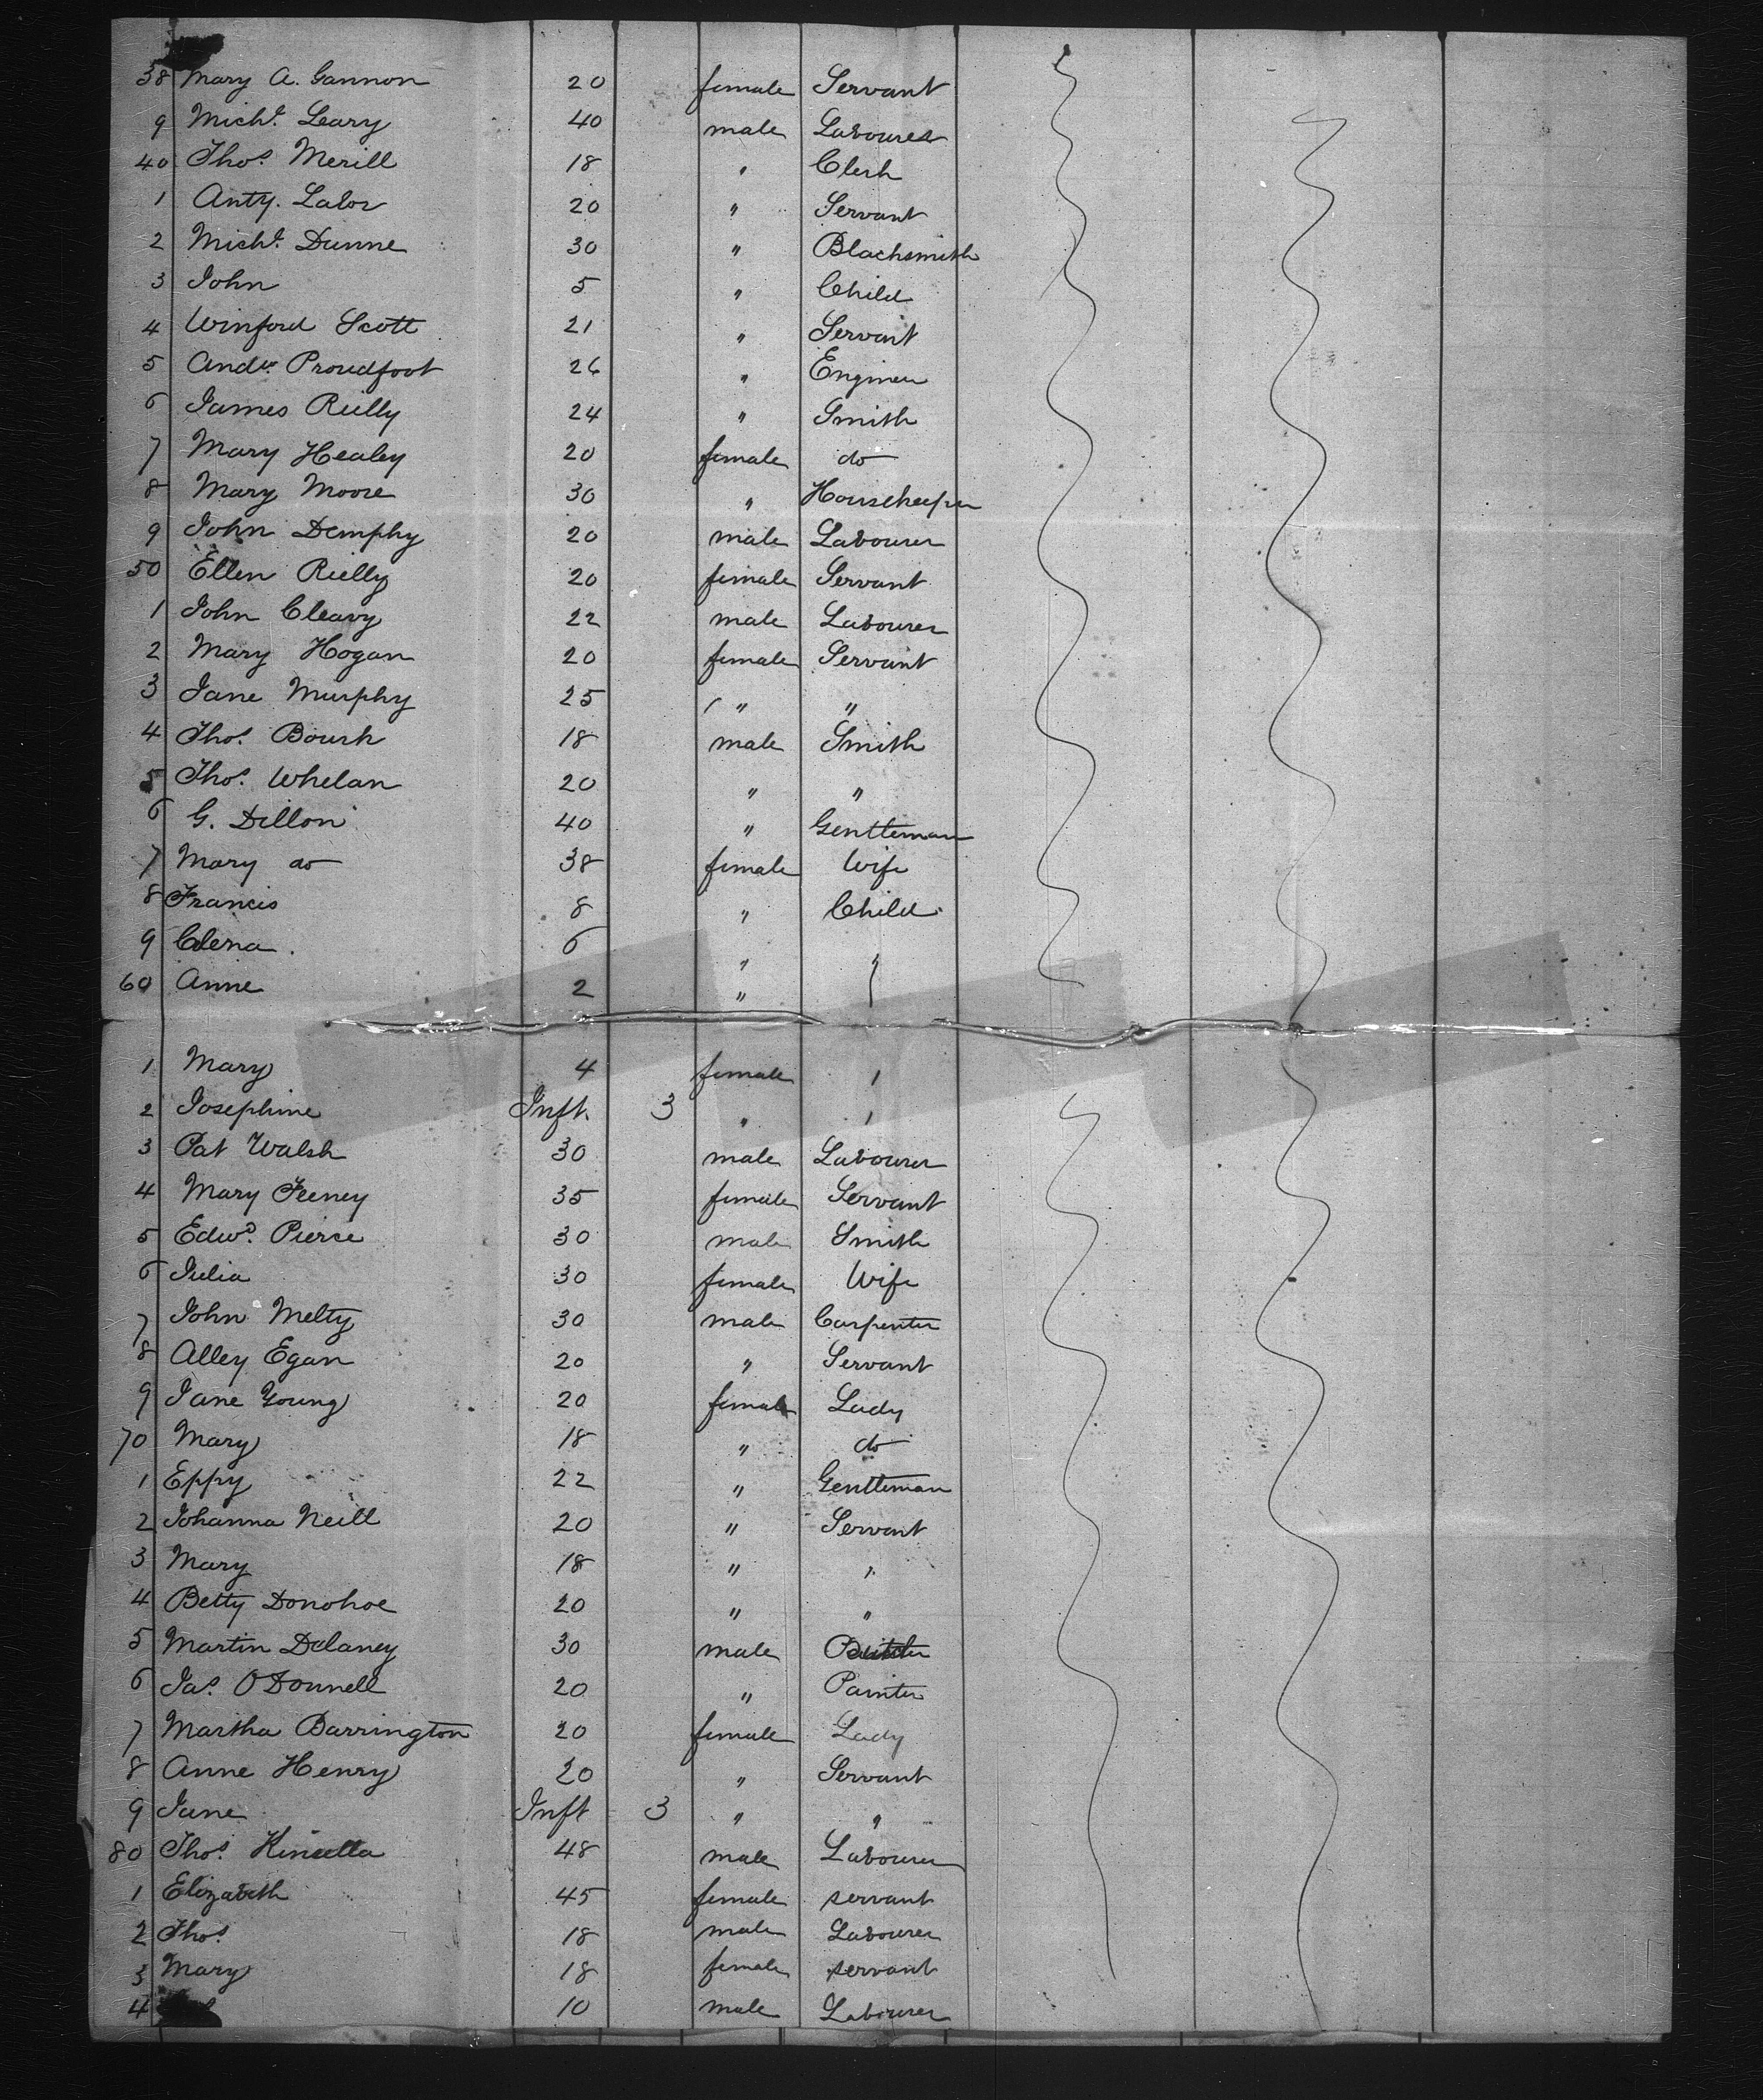 38 Mary A. Gannon 20 female Servant
9 Michl. Leary 40 male Labourer
40 Thos. Merill 18 " Clerk
1 Anty. Lalor 20 " Servant
2 Michl. Dunne 30 " Blacksmith
3 John 5 " Child
4 Winford Scott 21 " Servant
5 Andw. Proudfoot 26 " Engineer
6 James Reilly 24 " Smith
7 Mary Healey 20 female do
8 Mary Moore 30 " Housekeeper
9 John Demphy 20 male Labourer
50 Ellen Rielly 20 female Servant
1 John Cleary 22 male Labourer
2 Mary Hogan 20 female Servant
3 Jane Murphy 25 " "
4 Thos. Bourk 18 male Smith
5 Thos. Whelan 20 " "
6 G. Dillon 40 " Gentleman
7 Mary do 38 female Wife
8 Francis 8 " Child
9 6 " "
60 Anne 2 " "
1 Mary 4 female "
2 Josephine Inft. 3 " "
3 Pat Walsh 30 male Labourer
4 Mary Feeney 35 female Servant
5 Edwd. Pierse 30 male Smith
6 Julia 30 female Wife
7 John Melty 30 male Carpenter
8 Alley Egan 20 " Servant
9 Jane Young 20 female Lady
70 Mary 18 " do
1 Eppy 22 " Gentleman
2 Johanna Neill 20 " Servant
3 Mary 18 " "
4 Betty Donohoe 20 " "
5 Martin Delaney 30 male
6 Jas. O'Donnell 20 " Painter
7 Martha Barrington 20 female Lady
8 Anne Henry 20 " Servant
9 Jane Inft 3 " "
80 Thos. Kinsella 48 male Labourer
1 Elizabeth 45 female servant
2 Thos. 18 male Labourer
3 Mary 18 female servant
4 10 male Labourer